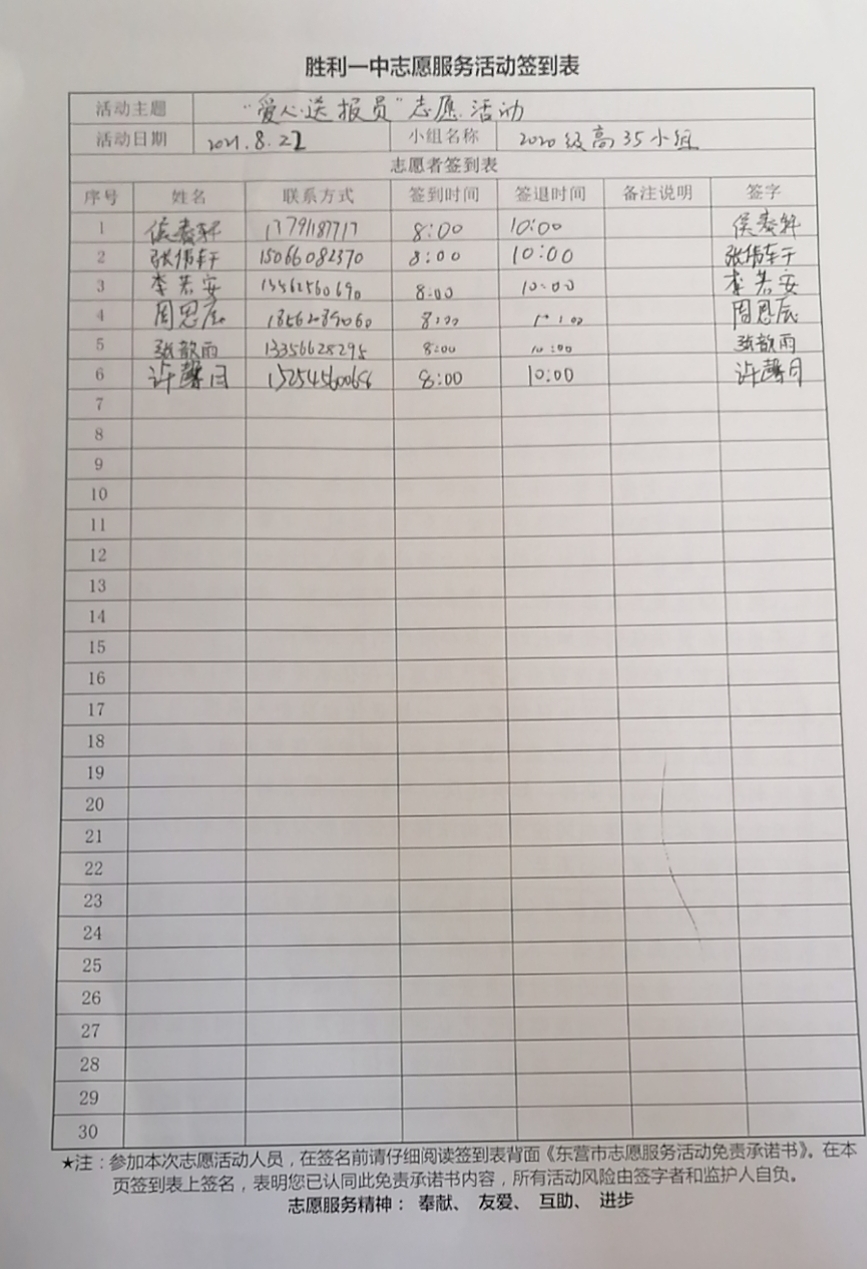 胜利一中志愿服务活动签到表
活动主题 "爱心送报员"志愿活动
活动日期 2021.8.22 小组名称 2020级高35小组
志愿者签到表
序号 姓名 联系方式 签到时间 签退时间 备注说明 签字
1 8:00 10:00
2 15066082370 8:00 10:00
3 李若安 8:00 10:00 李若安
4 周恩辰 8:00 周恩辰
5 张歆雨 13356628295 8:00 10:00 张歆雨
6 许馨月 8:00 10:00 许馨月
7
8
9
10
11
12
13
14
15
16
17
18
19
20
21
22
23
24
25
26
27
28
29
30
★注：参加本次志愿活动人员，在签名前请仔细阅读签到表背面《东营市志愿服务活动免责承诺书》。在本
页签到表上签名，表明您已认同此免责承诺书内容，所有活动风险由签字者和监护人自负。
志愿服务精神： 奉献、 友爱、 互助、 进步